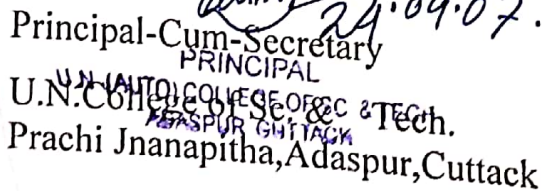 24.09.07.
Principal-Cum-Secretary
PRINCIPAL
U.N.College of Sc. & Tech.
U.N.(AUTO) COLLEGE OF SC & TECH
ADASPUR CUTTACK
Prachi Jnanapitha,Adaspur,Cuttack